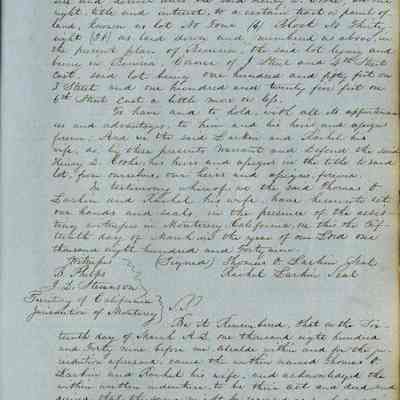 and devise unto the said Henry D. Cooke, all our
right, title and interest, to a certain tract or parcel of
land, known as lot No Four (4) Block No Thirty
eight (38) as laid down and numbered as above, in
the present plan of Benicia, the said lot lying and
being in Benicia, Corner of J Street and 6th Street
East, said lot being one hundred and fifty feet on
J Street and one hundred and twenty five feet on
6th Street East a little more or less.
To have and to hold, with all its appurtenan
ces and advantages, to him and his heirs and assigns
forever. And we the said Larkin and Rachel his
wife, do, by these presents, Warrant and defend the said
Henry D. Cooke, his heirs and assigns in the title to said
lot, from ourselves, our heirs and assigns, forever.
In testimony whereof, we the said Thomas O.
Larkin and Rachel his wife, have hereunto set
our hands and seals, in the presence of the attes
ting witnesses in Monterey California, on this the Fif
teenth day of March in the year of our Lord one
thousand eight hundred and forty nine.
Witness (Signed) Thomas O. Larkin Seal
B. Phelps Rachel Larkin Seal
J. D. Stevenson
Territory of California
Jurisdiction of Monterey
Be it Remembered, that on the Six-
teenth day of March A.D. one thousand eight hundred
and forty nine before me Alcalde within and for the ju-
risdiction aforesaid, came the within named Thomas O.
Larkin and Rachel his wife, and acknowledged the
within written indenture to be their act and deed and